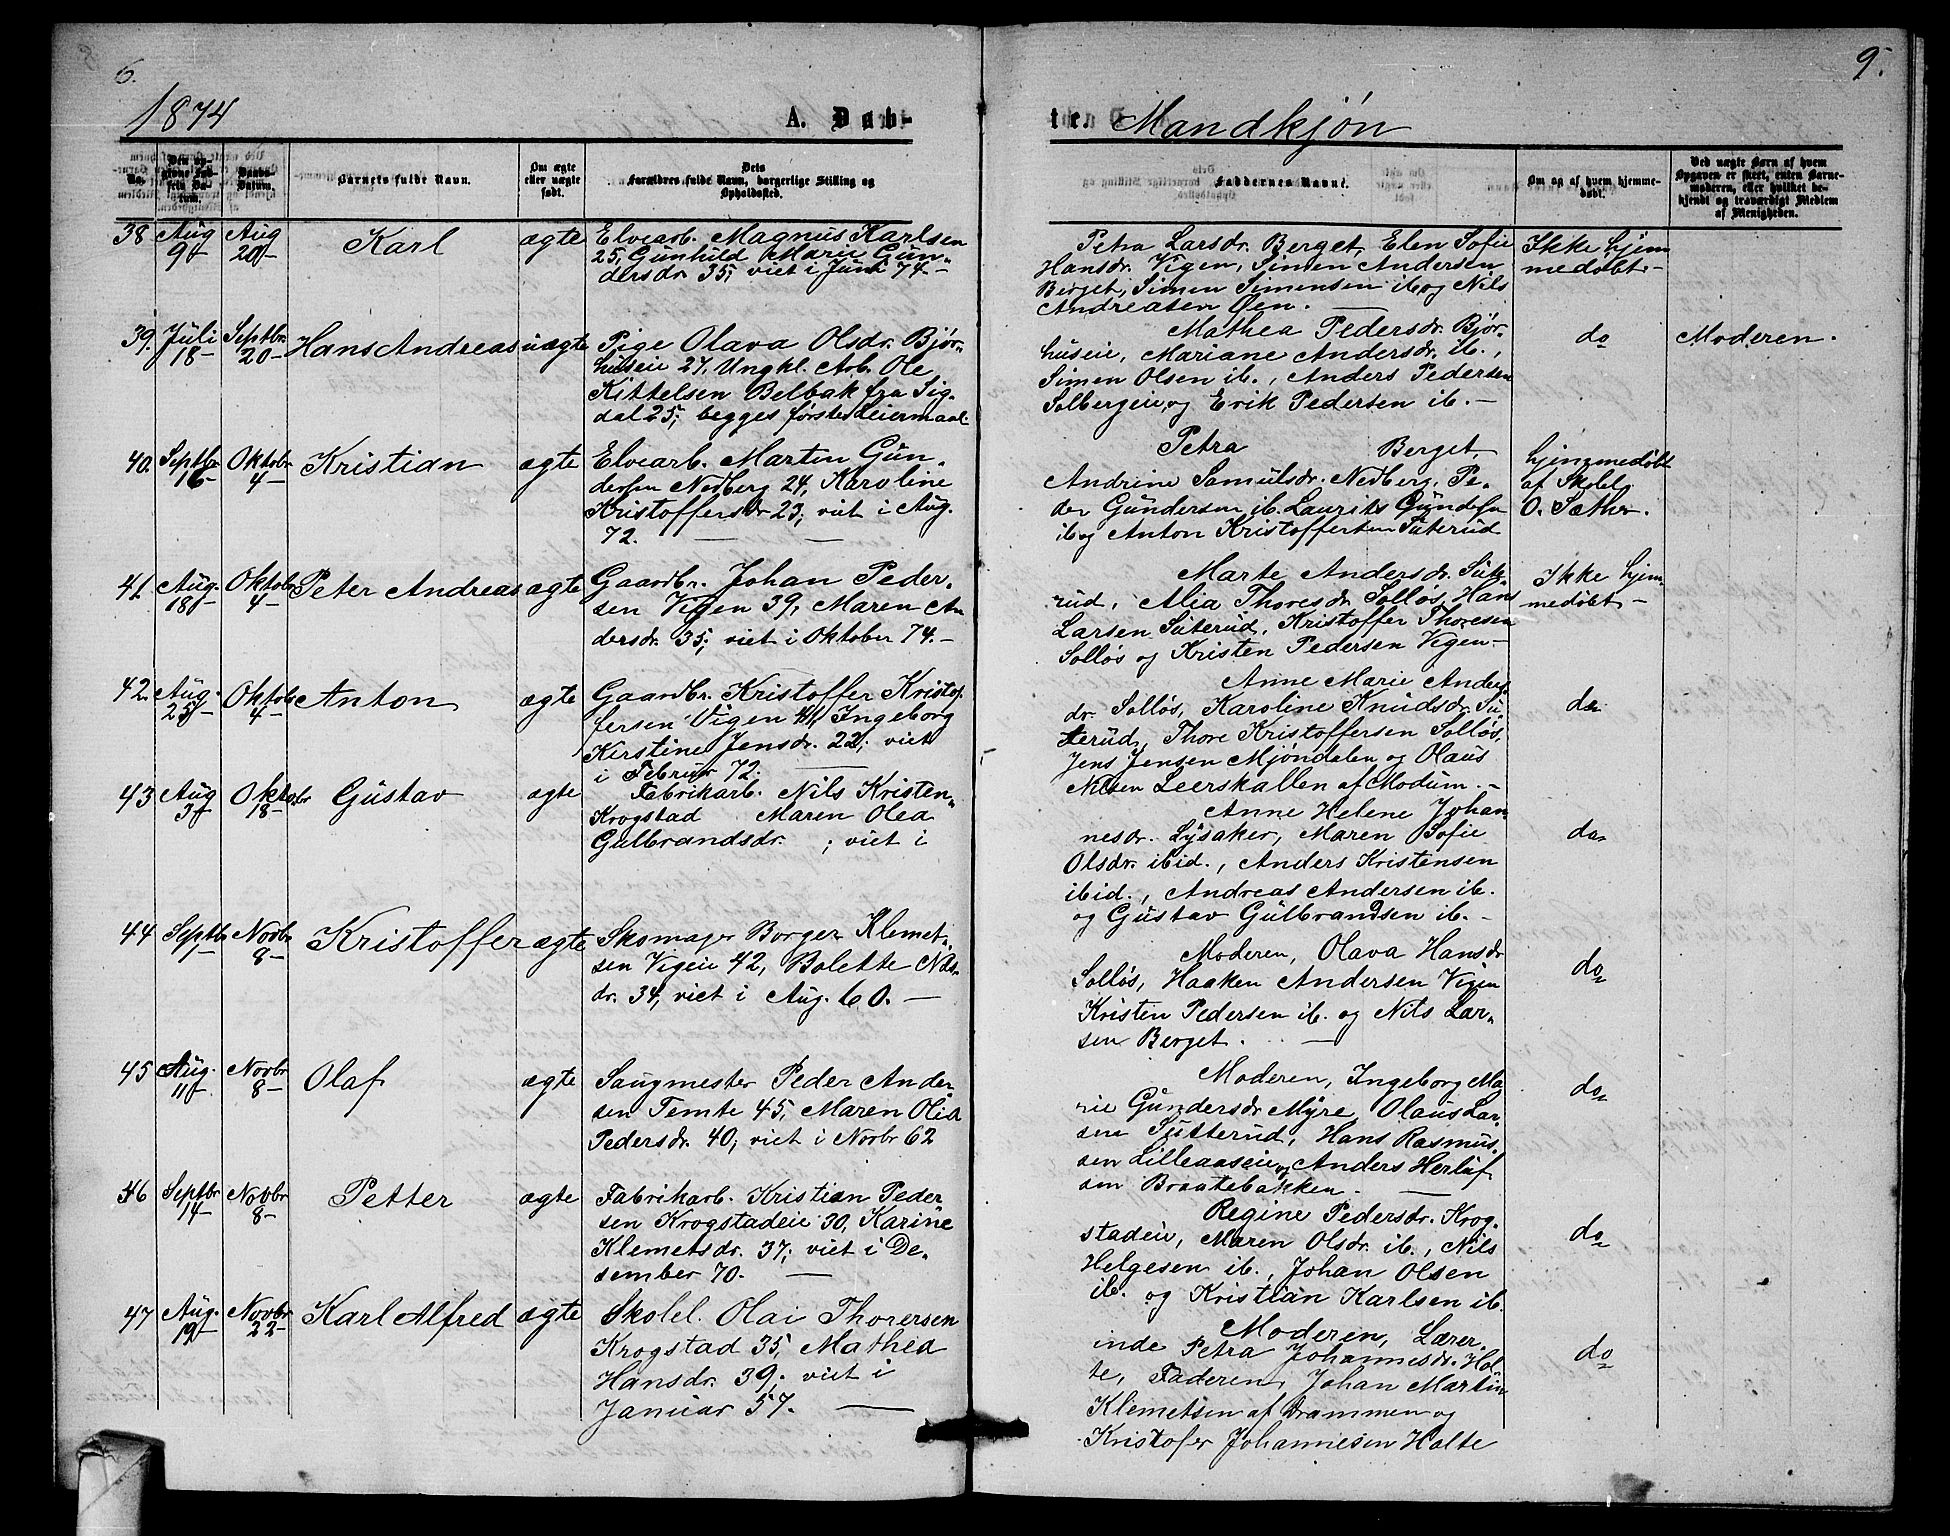 6.
9.
1874
A. Døb-
te. Mandkjön
No.
Den op-
givne Fød-
sels Da-
tum.
Daabs-
Datum.
Barnets fulde Navn.
Om ægte
eller uægte
født.
Dets
Forældres fulde Navn, borgerlige Stilling og
Opholdssted.
Faddernes Navne.
Om og af hvem hjemme-
døbt.
Ved uægte Børn af hvem
Opgaven er skeet, enten Barne-
moderen, eller hvilket be-
kjendt og troværdigt Medlem
af Menigheden.
38
Aug
9
Aug
20
Karl
ægte
Elvearb. Magnus Karlsen
25, Gunhild Marie Gun-
dersdr. 35; viet i Juni 74.-
Petra Larsdr. Berget, Elen Sofie
Hansdr. Vigen, Simen Andersen
Berget, Simen Simensen ib og Nils
Andreasen Øen.
Ikke hjem
medøbt.-
39.
Juli
18-
Septbr.
20-
Hans Andreas
uægte
Pige Olava Olsdr. Bjør-
huseie 27, Ungkl. Arb. Ole
Kittelsen Belbak fra Sig-
dal 25; begges første Leiermaal
Mathea Pedersdr. Bjør-
huseie, Mariane Andersdr. ib.,
Simen Olsen ib., Anders Pedersen
Solbergeie, og Erik Pedersen ib.-
do
Moderen.
40.
Septbr
16-
Oktobr
4-
Kristian
ægte
Elvearb. Marten Gun-
dersen Nedberg 24, Karoline
Kristoffersdr 23; viet i Aug.
72.
Petra Berget,
Andrine Samulsdr. Nedberg, Pe-
der Gundersen ib. Laurits
ib og Anton Kristoffersen Suterud
hjemmedøbt
af Skolelr
O. Sæther.
41.
Aug.
18
Oktobr
4-
Peter Andreas
ægte
Gaardbr. Johan Peder-
sen Vigen 39, Maren An
dersdr. 35; viet i Oktober 74.-
Marte Andersdr. Sute-
rud, Alia Thoresdr. Solløs, Hans
Larsen Suterud, Kristoffer Thoresen
Solløs og Kristen Pedersen Vigen-
Ikke hjem
medøbt-
42.
Aug.
Oktobr
4-
Anton
ægte
Gaardbr. Kristoffer Kristof-
fersen Vigen 41, Ingeborg
Kirstine Jensdr. 22; viet
i Februr 72.
Anne Marie Anders-
dr. Solløs, Karoline Knudsdr. Su-
terud, Thore Kristoffersen Solløs,
Jens Jensen Mjöndalen og Olaus
Nilsen Leerskallen af Modum.-
do-
43
Aug
Oktobr
18-
Gustav
ægte
Fabrikarb. Nils Kristen-
Krogstad Maren Olea
Gulbrandsdr. ; viet i
Anne Helene Johan-
nesdr. Lysaker, Maren Sofie
Olsdr. ibid., Anders Kristensen
ibid., Andreas Andersen ib.
og Gustav Gulbrandsen ib.-
do-
44
Septbr
Novbr
8-
Kristoffer
ægte
Skomager Borger Klemet-
sen Vigeie 42, Bolette Nils-
dr. 34, viet i Aug. 60.-
Moderen, Olava Hansdr
Solløs, Haaken Andersen Vigen
Kristen Pedersen ib. og Nils Lar-
sen Berget.
do-
45
Aug.
11
Novbr
8-
Olaf
ægte
Saugmester Peder Ander
sen Temte 45, Maren Olia
Pedersdr. 40; viet i Novbr 62
Moderen, Ingeborg Ma-
rie Gundersdr Myre, Olaus Lar-
sen Sutterud, Hans Rasmus-
sen Lilleaaseie, og Anders Herluf-
sen Braatebakken.
do-
46
Septbr
14-
Novbr
8-
Petter
ægte
Fabrikarb. Kristian Peder
sen Krogstadeie 30, Karine
Klemetsdr. 37; viet i De-
sember 70.
Regine Pedersdr. Krog-
stadeie, Maren Olsdr. ib., Nils
Helgesen ib., Johan Olsen
ib. og Kristian Karlsen ib.
do-
47
Aug.
19
Novbr
22-
Karl Alfred
ægte
Skolel. Olai Thorersen
Krogstad 35, Mathea
Hansdr. 39; viet i
Januar 57.
Moderen, Lærer-
inde Petra Johannesdr. Hol-
te, Faderen, Johan Martin
Klemetsen af Drammen og
Kristofer Johannesen Holte
do-